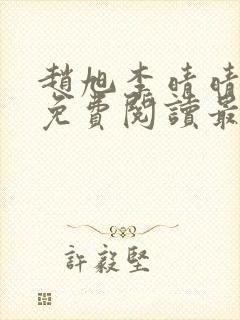 趙旭李晴晴
免費閱讀最
許毅堅